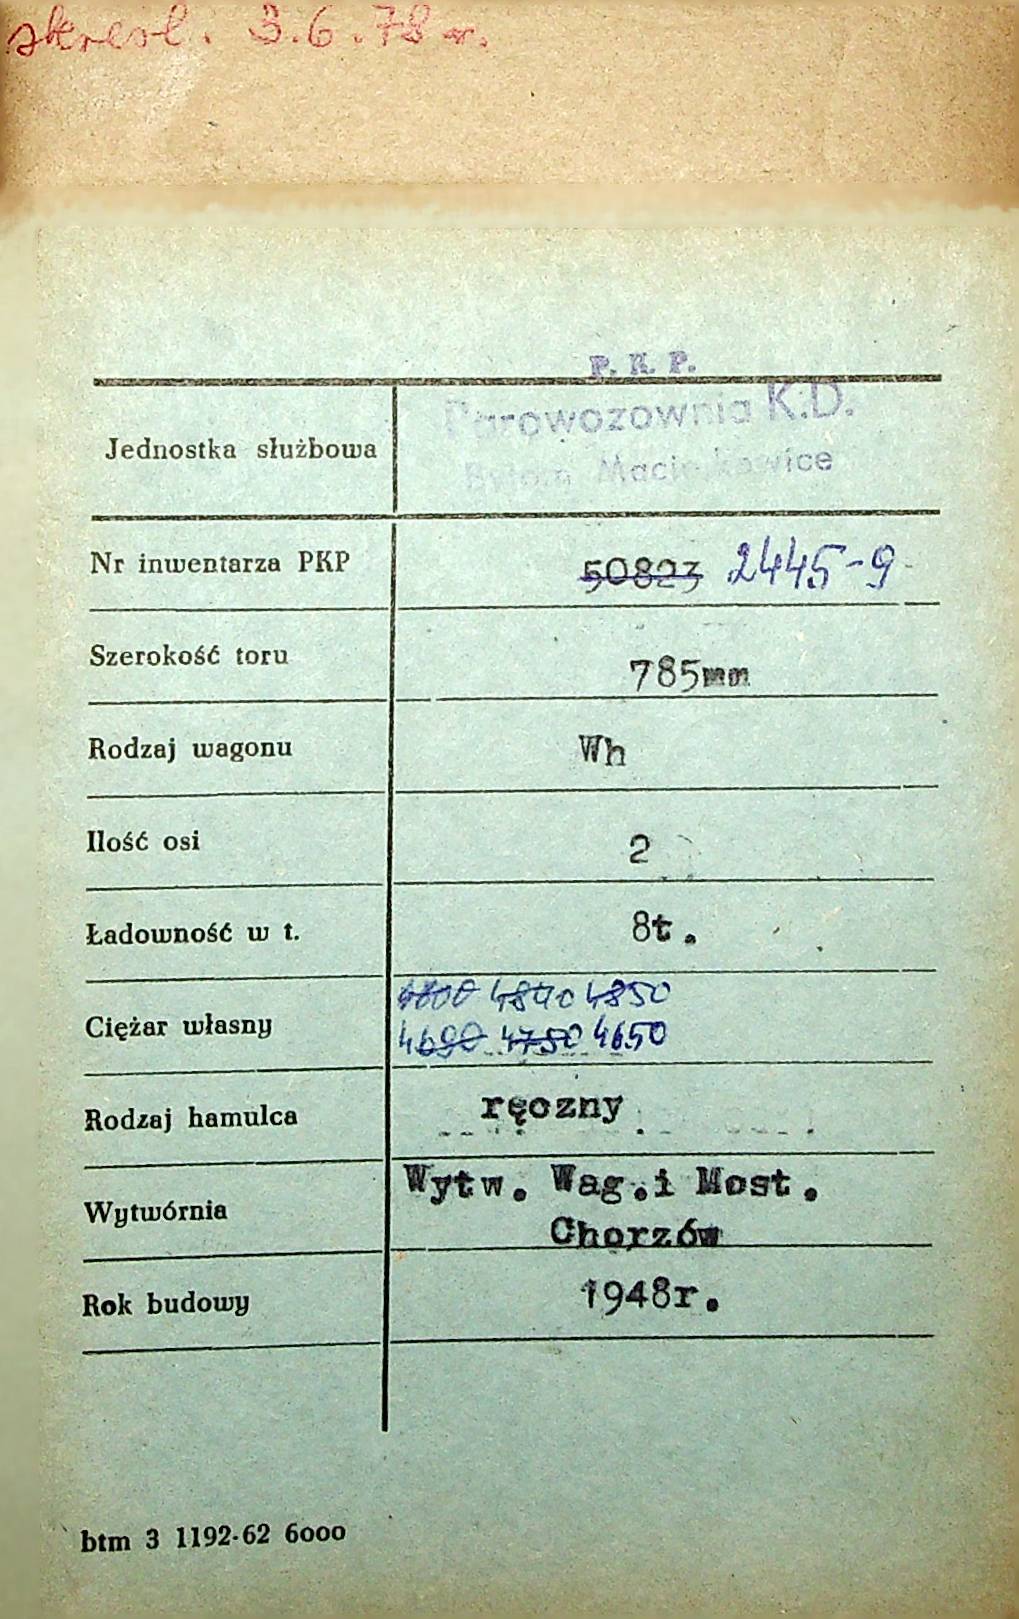 skreśl. 3.6.78 r.
P. K. P.
Parowozownia K.D.
Jednostka służbowa
Bytom Maciejkowice
Nr inwentarza PKP 50823 2445-9
Szerokość toru 785mm
Rodzaj wagonu Wh
Ilość osi 2
Ładowność w t. 8t.
4800 4840 4850
Ciężar własny 4690 4780 4650
Rodzaj hamulca ręczny
Wytw. Wag.i Most.
Wytwórnia Chorzów
Rok budowy 1948r.
btm 3 1192-62 6000